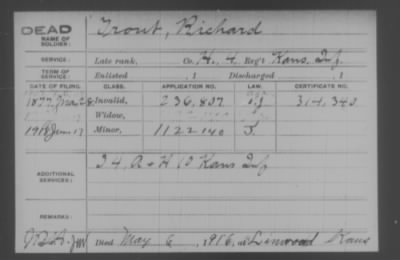 DEAD
NAME OF SOLDIER: Trout, Richard
SERVICE: Late rank, Co. H, 4 Reg't Kans. Inf.
TERM OF SERVICE: Enlisted , 1 Discharged , 1
DATE OF FILING. CLASS. APPLICATION NO. LAW. CERTIFICATE NO.
1877, Mar 28 Invalid, 236,807 314,340
Widow,
1916 Jun 17 Minor, 1122140 J.
ADDITIONAL SERVICES: I 4, A + H 10 Kans Inf
REMARKS:
Died May 6, 1916, at Linwood Kans